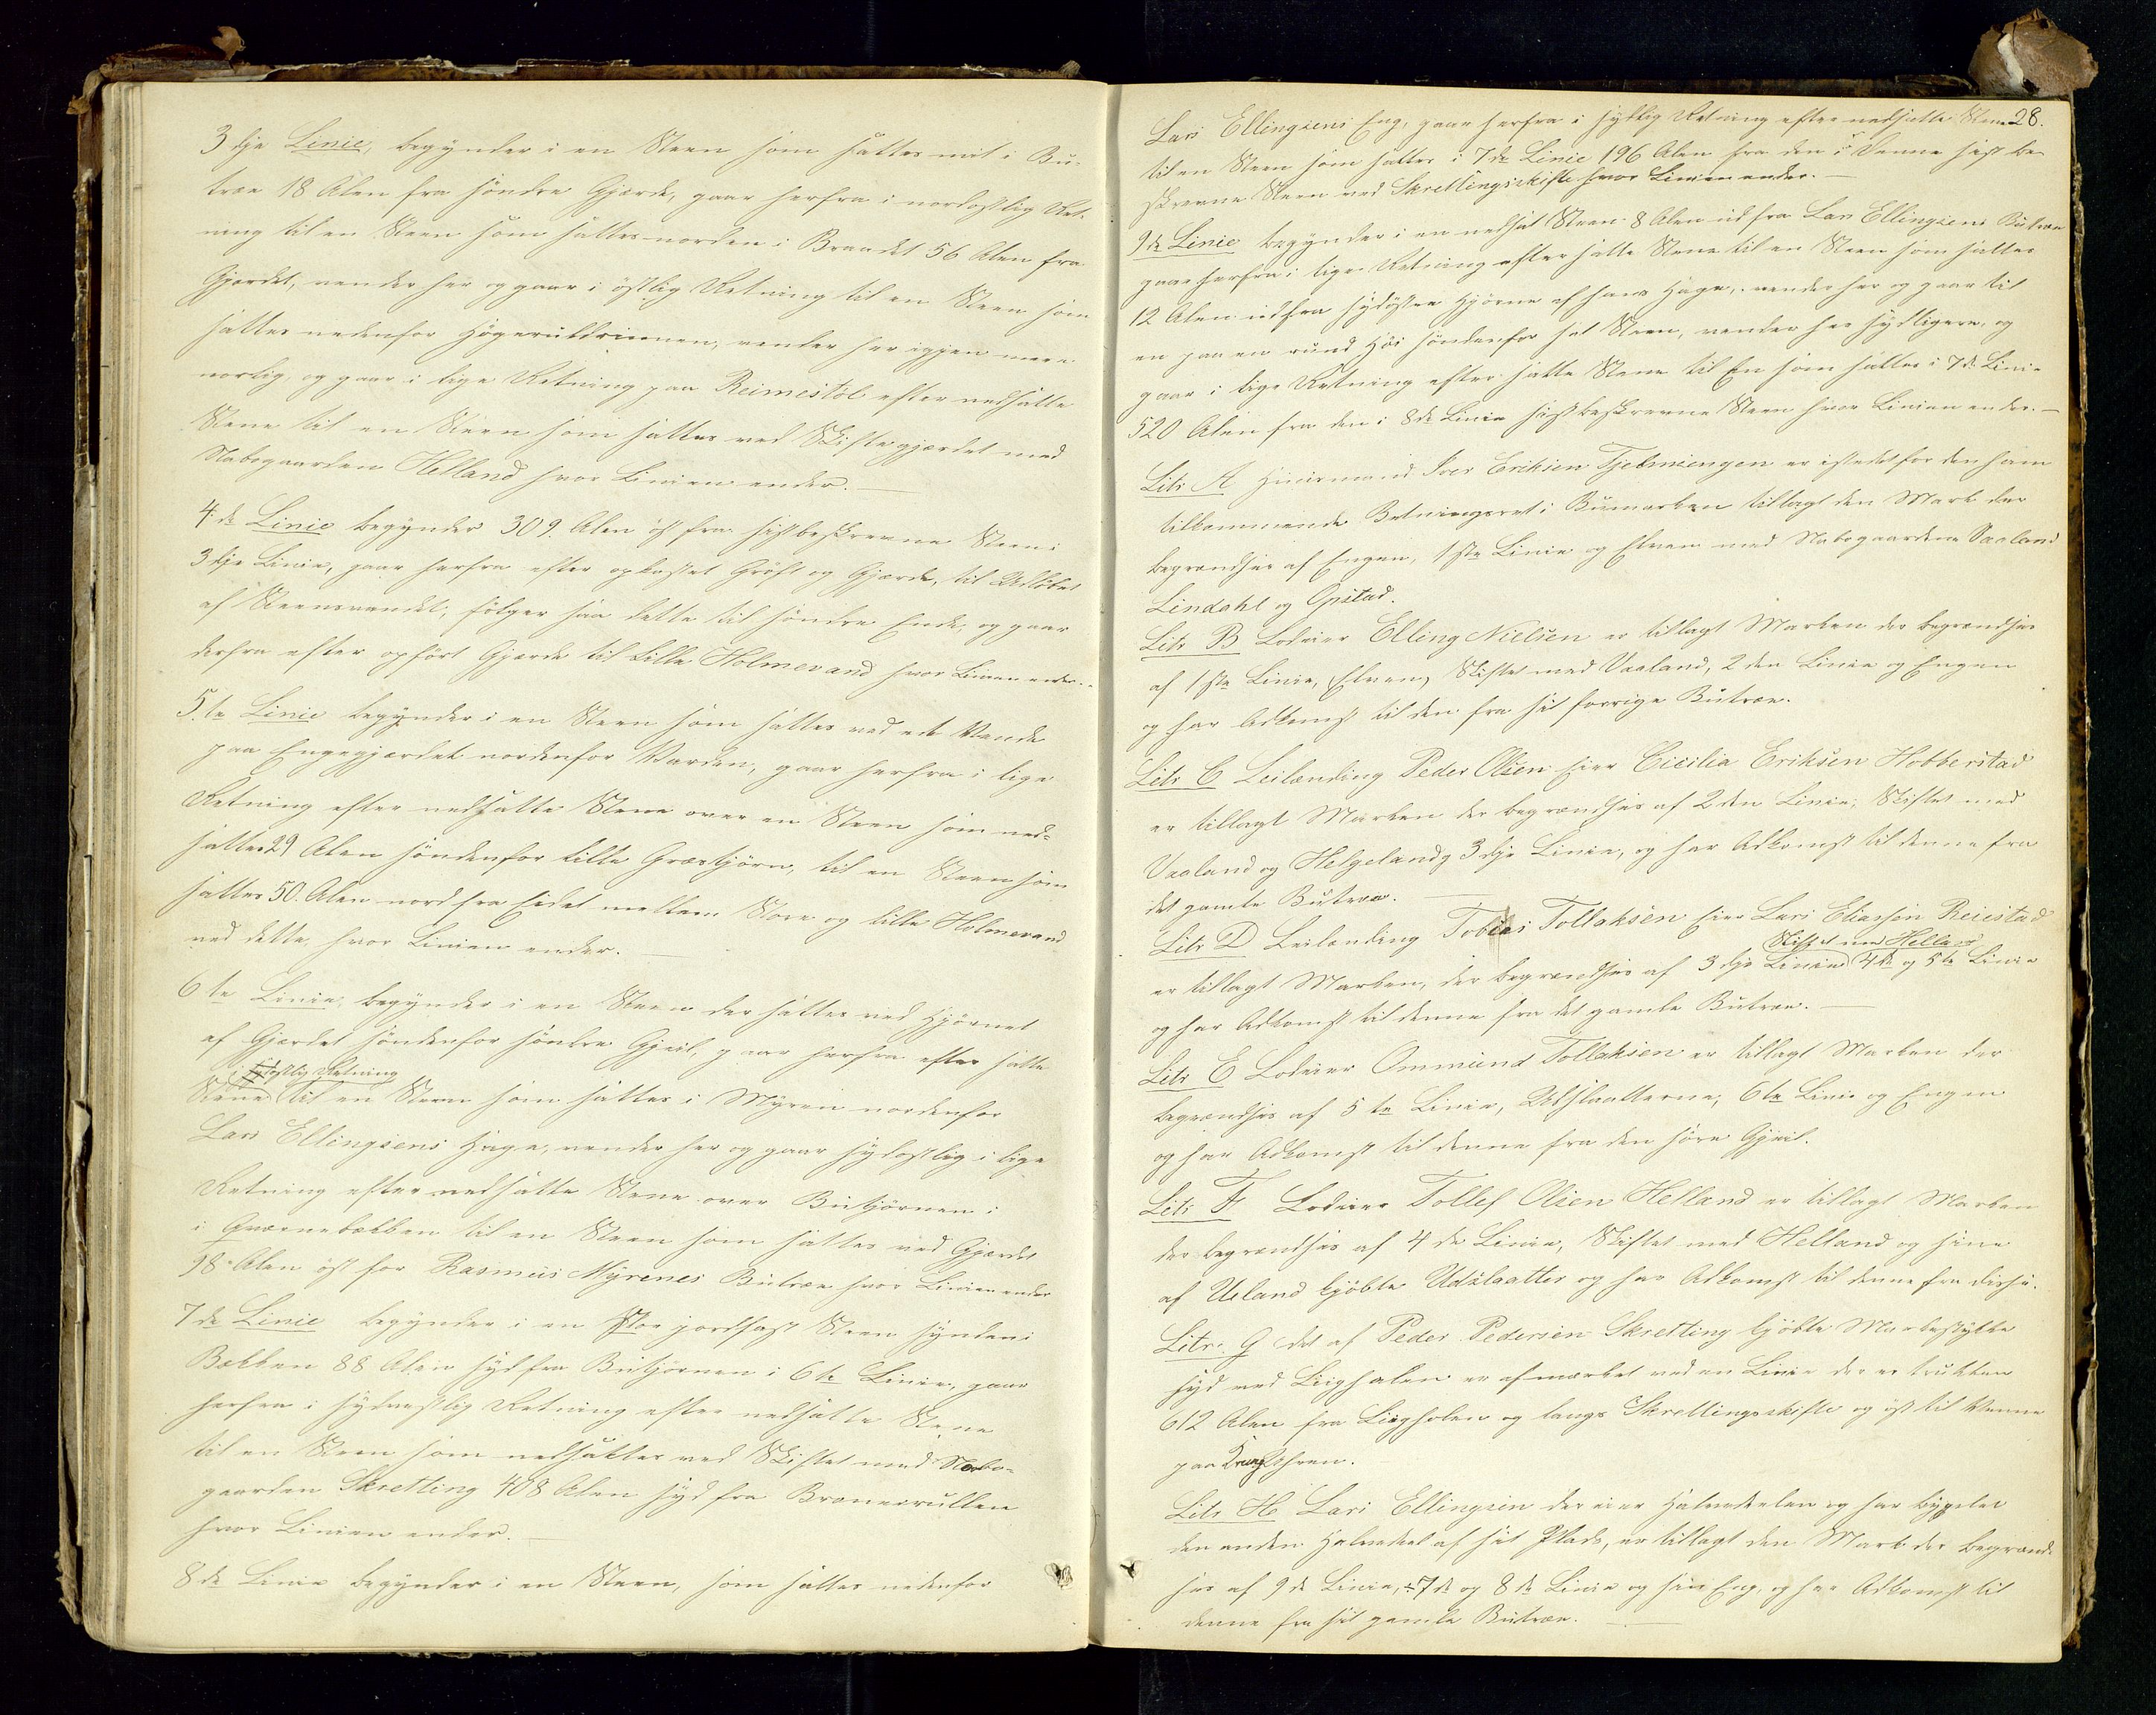 3dje Linie, begynder i en Steen som sattes mit i Bu-
træe 18 Alen fra søndre Gjærde, gaar herfra i nordostlig Ret-
ning til en Steen som sattes norden i Brandet 56 Alen fra
Gjærdet, vender her og gaar i östlig Retning til en Steen som
sattes nedenfor, vender her igjen mere
nordlig, og gaar i lige Retning paa Reimestöl efter nedsatte
Stene til en Steen som sattes ved Skiftegjærdet med
Nabogaarden Helland hvor Linien ender. —
4de Linie begynder 309. Alen öst fra sidstbeskrevne Steen i
3dje Linie, gaar herfra efter opkastet Gröft og Gjærde, til Udlöbet
af Steensvandet, fölger saa dette til söndre Ende, og gaar
derfra efter opfört Gjærde til Lille Holmevand hvor Linien ender. -
5te Linie begynder i en Steen som sattes ved et Vande
paa Engegjærdet nordenfor Varden, gaar herfra i lige
Retning efter nedsatte Stene over en Steen som ned-
sattes 29 Alen söndenfor lille Græstjörn, til en Steen som
sattes 50. Alen nord fra Eidet mellem Store og lille Holmevand
ved dette, hvor Linien ender. —
6te Linie, begynder i en Steen der sattes ved Hjörnet
af Gjærdet söndenfor söndre Gjeil, gaar herfra efter satte
i sydostlig Retning
Stene til en Steen som sattes i Myren nordenfor
Lars Ellingsens Hage, vender her og gaar sydostlig i lige
Retning efter nedsatte Stene over Butjörnen i
i Qværnebækken til en Steen som sattes ved Gjærdet
98 Alen öst for Rasmus Myrenes Butræe hvor Linien ender
7de Linie begynder i en stor jordfast Steen synden i
Bækken 88 Alen syd fra Butjörnen i 6te Linie, gaar
herfra i sydvestlig Retning efter nedsatte Stene
til en Steen som nedsattes ved Skiftet med Nabo-
gaarden Skretting 408 Alen syd fra
hvor Linien ender. —
8de Linie begynder i en Steen, som sattes nedenfor
28.
Lars Ellingsens Eng, gaar herfra i sydlig Retning efter nedsatte Stene
til en Steen som sattes i 7de Linie 196 Alen fra den i denne sidst be-
skrevne Steen ved Skrettingsskifte hvor Linien ender. —
9de Linie begynder i en nedsat Steen 8 Alen ud fra Lars Ellingsens Butræe
gaar herfra i lige Retning efter satte Stene til en Steen som sattes
12 Alen ud fra sydöstre Hjörne af hans Hage, vender her og gaar til
en paa en rund Höi söndenfor sat Steen, vender her sydligere, og
gaar i lige Retning efter satte Stene til En som sattes i 7de Linie
520 Alen fra den i 8de Linie sidst beskrevne Steen hvor Linien ender. —
Litr A Huusmand Iver Eriksen Tjelmsengen er istedet for den ham
tilkommende Beitningsret i Bumarken tillagt den Mark der
begrændses af Engen, 1ste Linie og Elven med Nabogaardene Vaaland
Lindahl og Opstad.
Litr B Lodeier Elling Nielsen er tillagt Marken der begrændses
af 1ste Linie, Elven, Skiftet med Vaaland, 2den Linie og Engen
og har Adkomst til den fra sit forrige Butræe.
Litr C Leilænding Peder Olsen eier Cicilia Eriksen Hobberstad
er tillagt Marken der begrændses af 2den Linie, Skiftet med
Vaaland og Helgeland, 3dje Linie, og har Adkomst til denne fra
det gamle Butræe. —
Litr D Leilænding Tobias Tollaksen eier Lars Eliassen Reiestad
Skiftet med Helland
er tillagt Marken, der begrændses af 3dje Linie 4de og 5te Linie
og har Adkomst til denne fra det gamle Butræe. —
Litr E Lodeier Ommund Tollaksen er tillagt Marken der
begrændses af 5te Linie, Udslaatterne, 6te Linie og Engen
og har Adkomst til denne fra den söre Gjeil.
Litr F Lodeier Tollef Olsen Helland er tillagt Marken
der begrændses af 4de Linie, Skiftet med Helland og sine
af Ueland kjöbte Udslaatter og har Adkomst til denne fra disse.
Litr. G det af Peder Pedersen Skretting kjöbte Markestykke
syd ved Liighalen er afmærket ved en Linie der er trukken
612 Alen fra Liigholen og langs Skrettingsskifte og öst til Stene
paa.
Litr H Lars Ellingsen der eier Halvedelen og har bygslet
den anden Halvedel af sit Plads, er tillagt den Mark der begrænd-
ses af 9de Linie, 7de og 8de Linie og sin Eng, og har Adkomst til
denne fra sit gamle Butræe. —